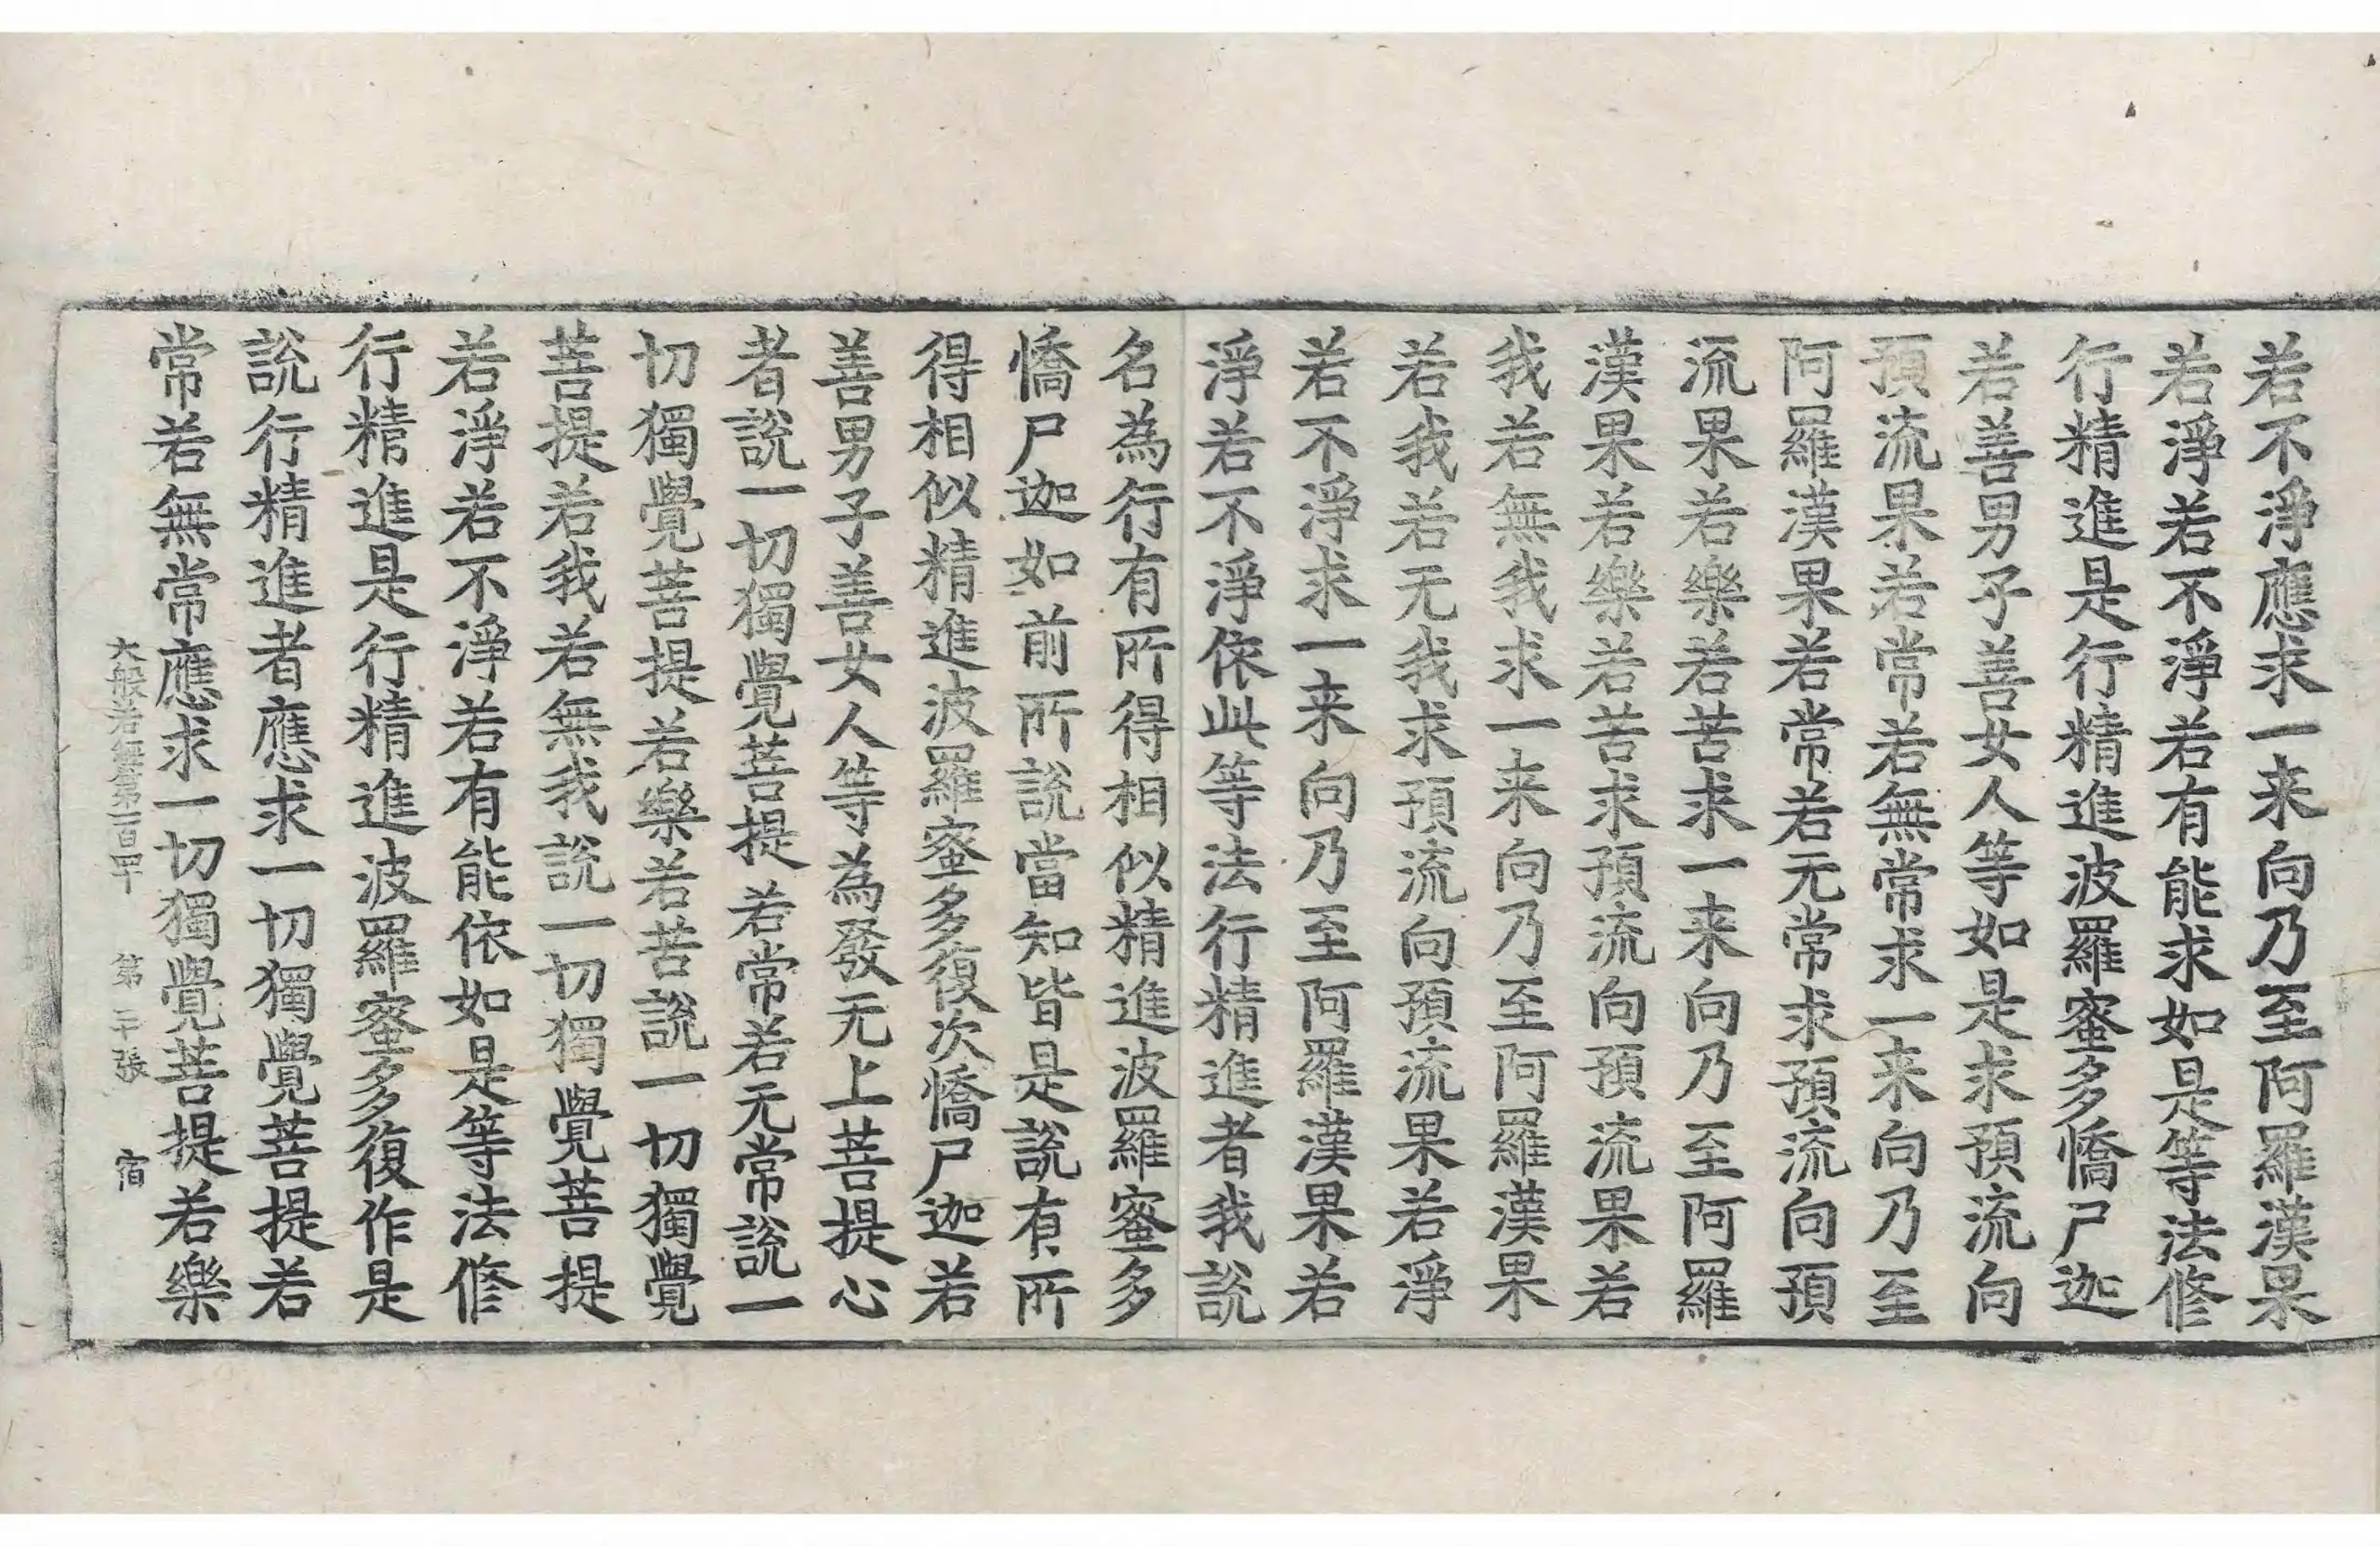 若不淨應求一来向乃至阿羅漢果
若淨若不淨若有能求如是等法修
行精進是行精進波羅蜜多憍尸迦
若善男子善女人等如是求預流向
預流果若常若無常求一来向乃至
阿羅漢果若常若无常求預流向預
流果若樂若苦求一来向乃至阿羅
漢果若樂若苦求預流向預流果若
我若無我求一来向乃至阿羅漢果
若我若无我求預流向預流果若淨
若不淨求一来向乃至阿羅漢果若
淨若不淨依此等法行精進者我說
名為行有所得相似精進波羅蜜多
憍尸迦如前所說當知皆是說有所
得相似精進波羅蜜多復次憍尸迦若
善男子善女人等為發无上菩提心
者說一切獨覺菩提若常若无常說一
切獨覺菩提若樂若苦說一切獨覺
菩提若我若無我說一切獨覺菩提
若淨若不淨若有能依如是等法修
行精進是行精進波羅蜜多復作是
說行精進者應求一切獨覺菩提若
常若無常應求一切獨覺菩提若樂
大般若經第一百甲 第二十張 宿